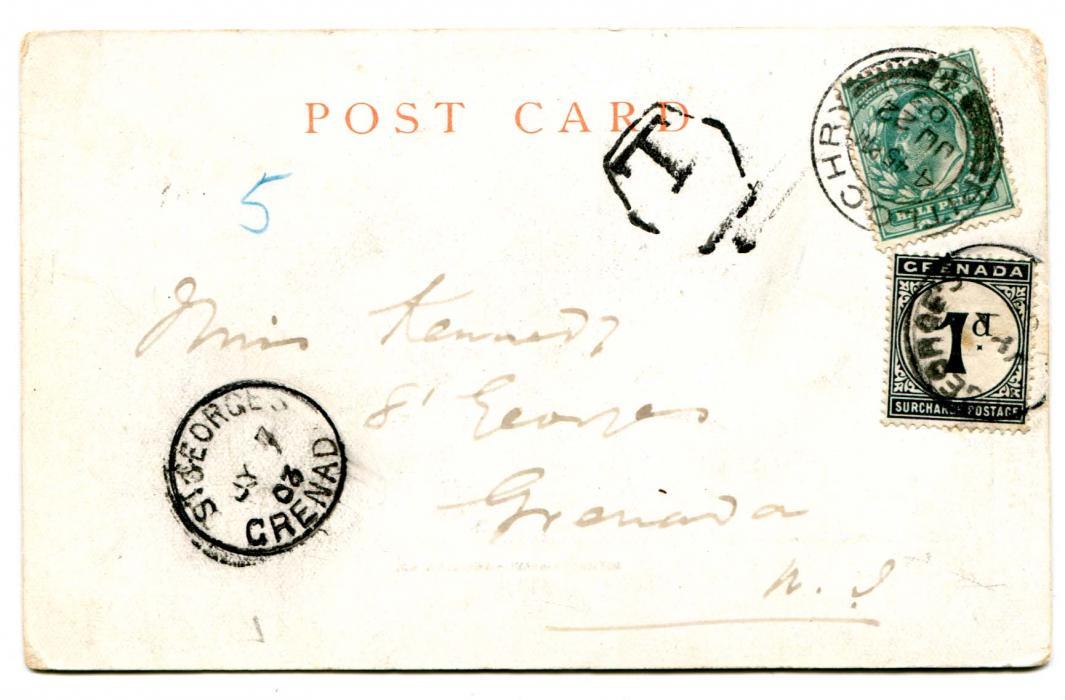 POST CARD
T
5
JU 22
03
HALF PENNY
GRENADA
1d.
SURCHARGE POSTAGE
GEORGES
Miss Kennedy
St Georges
Grenada
W. I
ST. GEORGES
JY 7
03
GRENAD